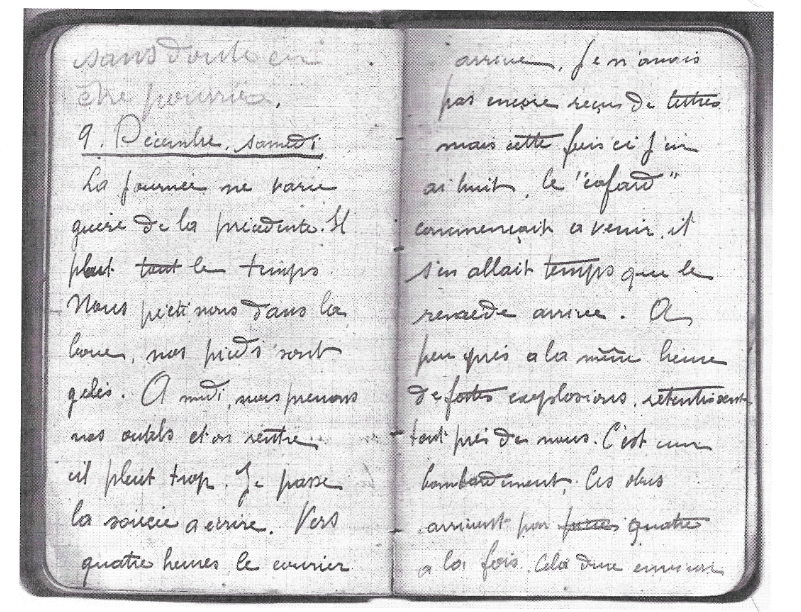 sans doute en
être pourrie.
9. Décembre. samedi
La journée ne varie
guère de la précédente. Il
pleut tout le temps
Nous piétinons dans la
boue, nos pieds sont
gelés. A midi, nous prenons
nos outils et on rentre
il pleut trop. Je passe
la soirée a écrire. Vers
quatre heures le courrier
arrive, Je n'avais
pas encore reçus de lettres
mais cette fois ci j'en
ai huit, le "cafard"
commençait a venir, il
s'en allait temps que le
remède arrive. A
peu près a la même heure
de fortes explosions, retentissent
tout près de nous. C'est un
bombardement. Les obus
arrivent par quatre
a la fois. Cela dure environ